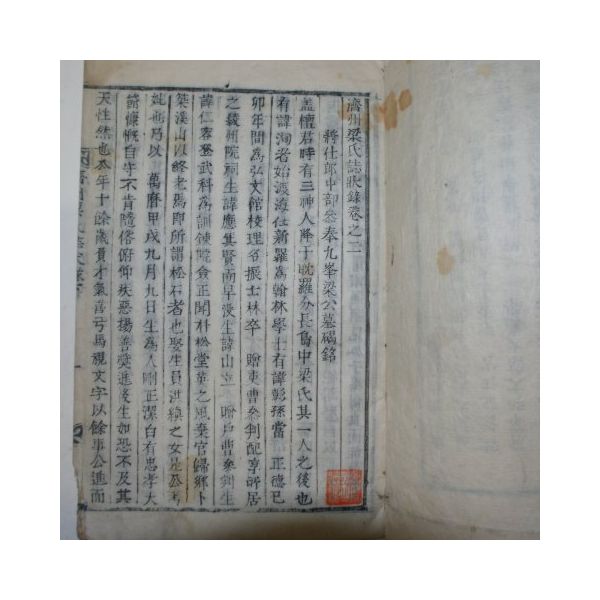 濟州梁氏誌狀錄卷之二
將仕郎中部參奉九峯梁公墓碣銘
盖檀君時有三神人降于耽羅分長島中梁氏其一人之後也
有諱洵者始渡海仕新羅爲翰林學士有諱彭孫當 正德己
卯年間爲弘文館校理名振士林卒 贈吏曹參判配享所居
之綾州院祠生諱應箕賢而早没生諱山立 贈戶曹參判生
諱仁容登武科爲訓鍊院僉正聞朴松堂英之風棄官歸鄕卜
築溪山以終老焉即所謂松石者也娶生員洪縝之女是公考
妣也乃以 萬曆甲戌九月九日生爲人剛正潔白有忠孝大
節慷慨自守不肯隨俗俯仰疾惡揚善奬進後生如恐不及其
天性然也公年十餘歲貫才氣善弓馬視文字以餘事公進而